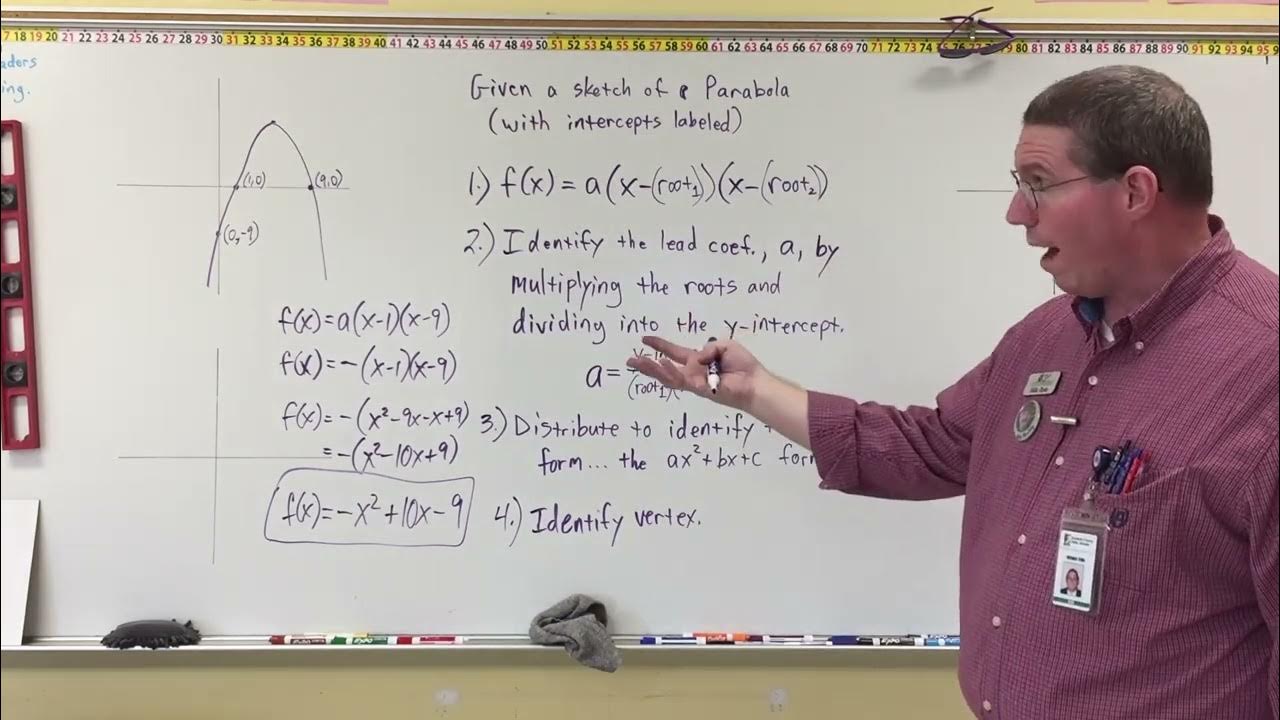 17 18 19 20 21 22 23 24 25 26 27 28 29 30 31 32 33 34 35 36 37 38 39 40 41 42 43 44 45 46 47 48 49 50 51 52 53 54 55 56 57 58 59 60 61 62 63 64 65 66 67 68 69 70 71 72 73 74 75 76 79 80 81 82 83 84 85 86 87 88 89 90 91 92 93 94 95
aders
ing.
(1,0)
(9,0)
(0,-9)
f(x)=a(x-1)(x-9)
f(x)=-(x-1)(x-9)
f(x)=-(x²-9x-x+9)
=-(x²-10x+9)
f(x)=-x²+10x-9
Given a sketch of a Parabola
(with intercepts labeled)
1.) f(x)=a(x-(root₁))(x-(root₂))
2.) Identify the lead coef., a, by
multiplying the roots and
dividing into the y-intercept.
a= y-in
(root₁)(
3.) Distribute to identify
form... the ax²+bx+c form
4.) Identify vertex.